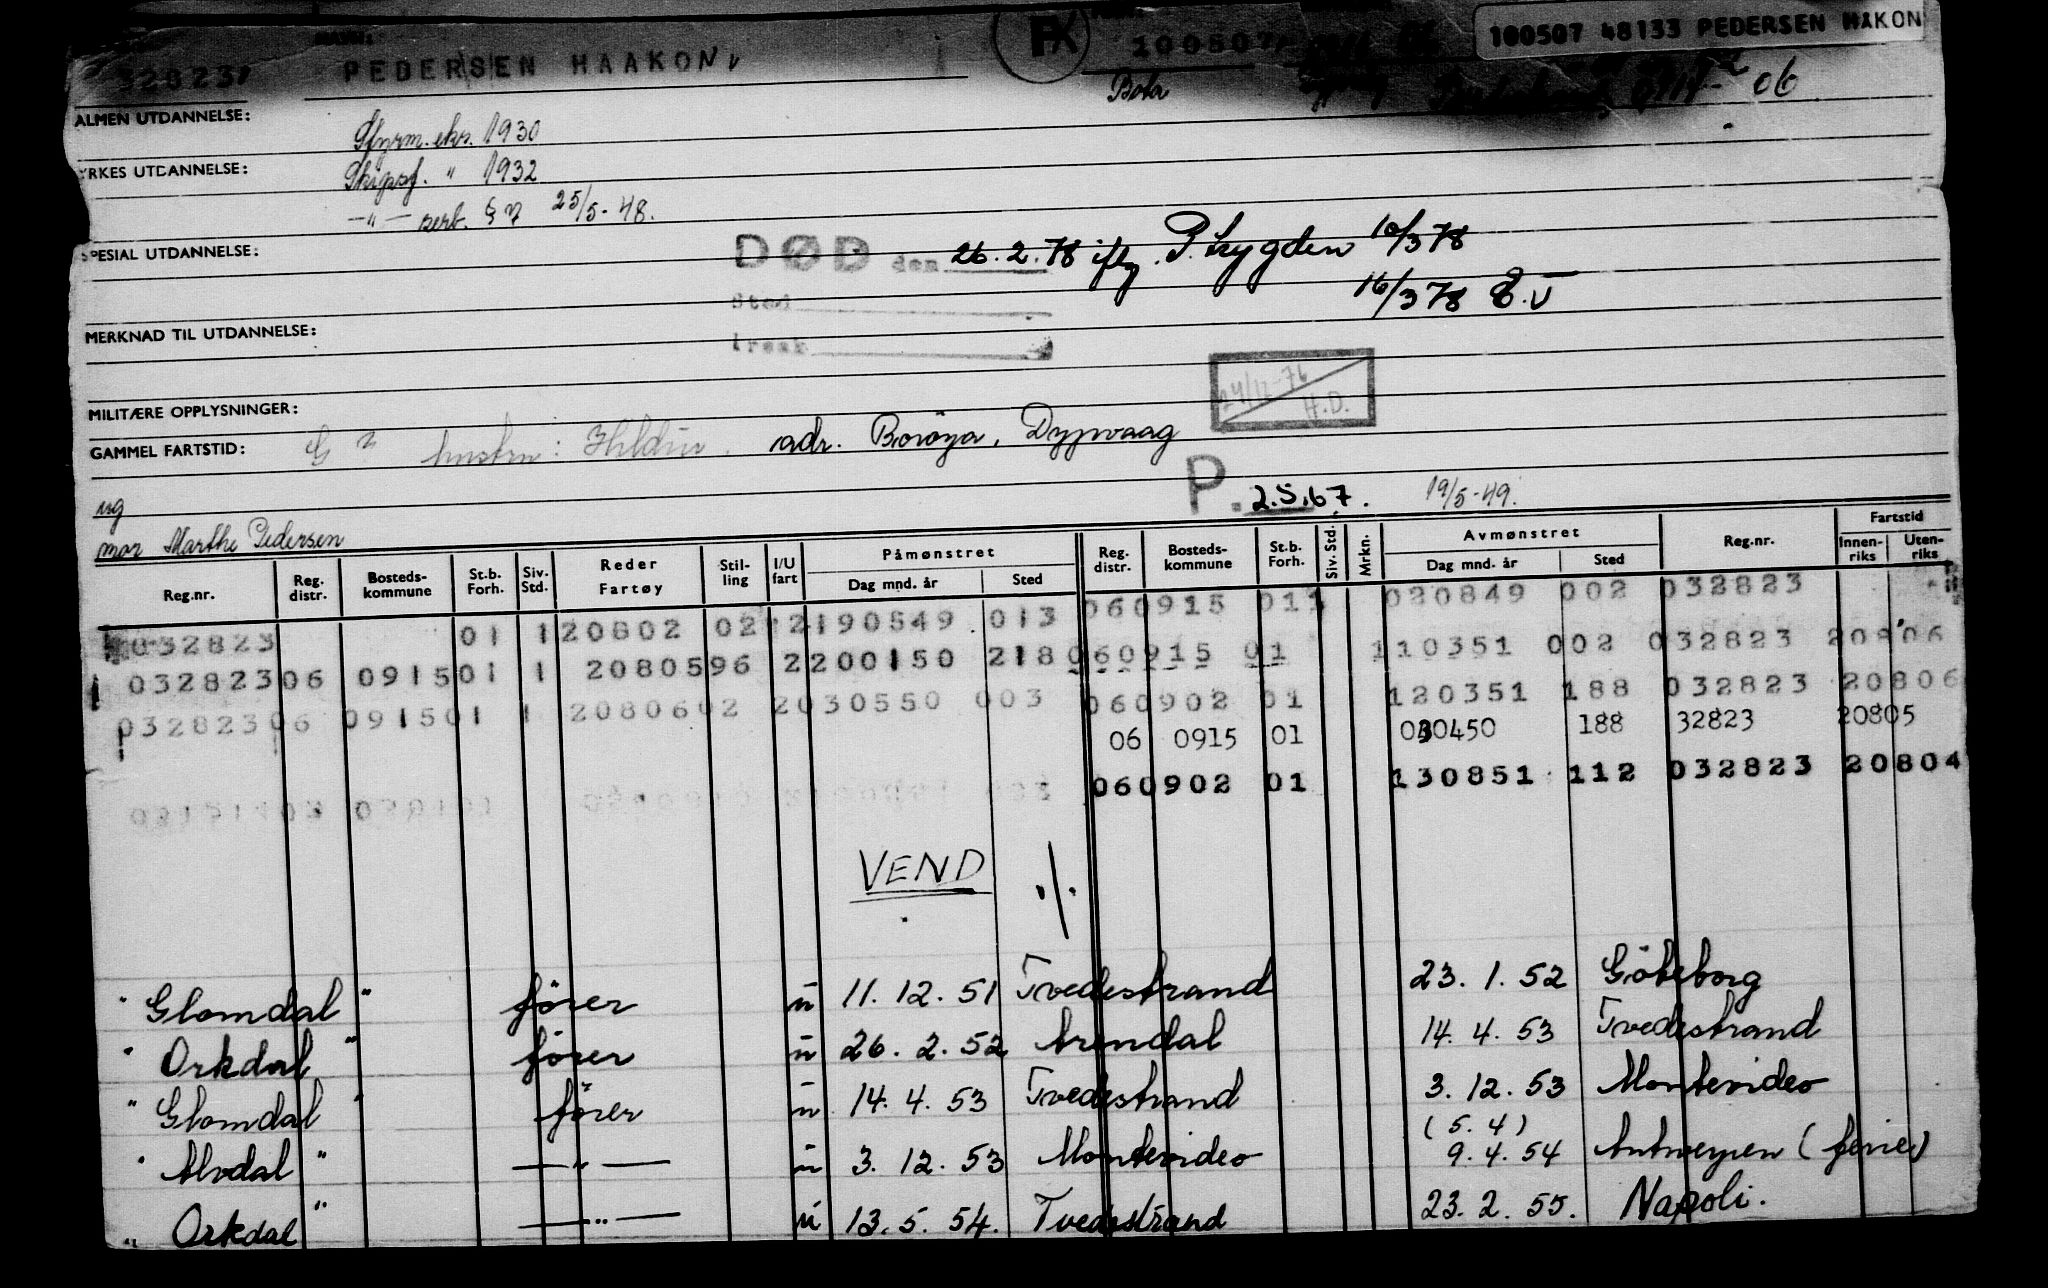 100507 48133 PEDERSEN HAKON
32823
PEDERSEN HAAKON
FX
100507
Bota
06
ALMEN UTDANNELSE:
Styrm. eks. 1930
YRKES UTDANNELSE:
Skipsf. " 1932
—"— sert. § 7 25/5-48.
SPESIAL UTDANNELSE:
DØD den 26.2.78 iflg. P. trygden 10/3 78
Sted
16/3 78
MERKNAD TIL UTDANNELSE:
Årsak
24/11-76
H.D.
MILITÆRE OPPLYSNINGER:
GAMMEL FARTSTID:
hustru: Hildur. adr. Borøya, Dypvaag
P. 2.5.67.
19/5-49.
ug
mor Marthe Pedersen
Reg.nr. Reg. distr. Bosteds-kommune St.b. Forh. Siv. Std. Reder Fartøy Stil-ling I/U fart Påmønstret Dag mnd. år Sted Reg. distr. Bosteds-kommune St.b. Forh. Siv. Std. Mrkn. Avmønstret Dag mnd. år Sted Reg.nr. Fartstid Innen-riks Uten-riks
032823 01 1 20802 02 2 190549 013 060915 011 020849 002 032823
032823 06 0915 01 1 20805 96 2 200150 218 060915 01 110351 002 032823 20806
032823 06 0915 01 1 20806 02 2 030550 003 060902 01 120351 188 032823 20806
06 0915 01 030450 188 32823 20805
060902 01 130851 112 032823 20804
VEND ./.
" Glomdal " fører u 11.12.51 Tvedestrand 23.1.52 Göteborg
" Orkdal " fører u 26.2.52 Arendal 14.4.53 Tvedestrand
" Glomdal " fører u 14.4.53 Tvedestrand 3.12.53 Montevideo
(5.4)
" Alvdal " —"— u 3.12.53 Montevideo 9.4.54 Antwerpen (ferie)
" Orkdal " —"— u 13.5.54. Tvedestrand 23.2.55. Napoli.